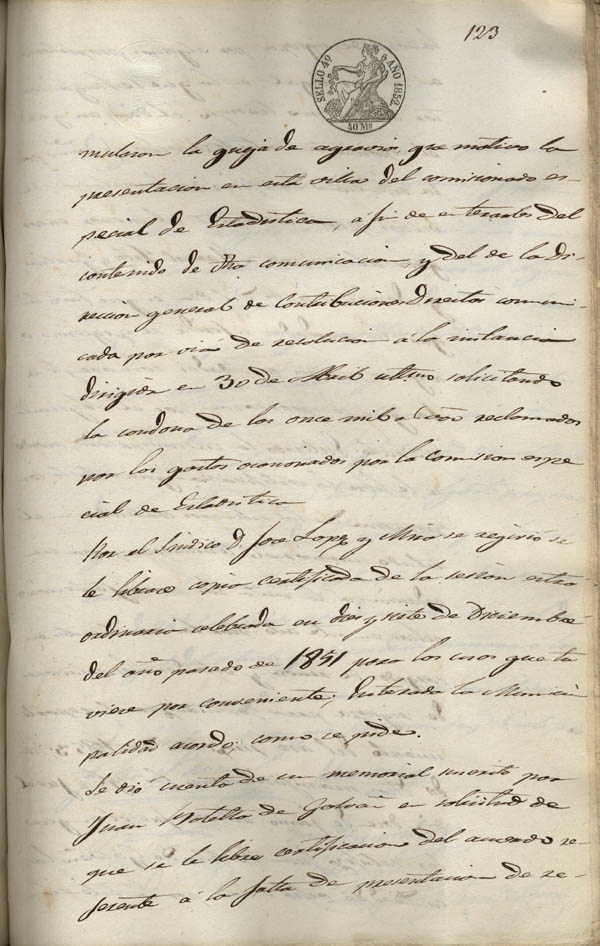 123
SELLO 4º AÑO 1852.
40 Ms
mularon la queja de agravios, que motivo la
presentacion en esta villa del comisionado es-
pecial de Estadistica, a fin de enterarles del
contenido de dha comunicacion, y del de la Di-
reccion general de Contribuciones Directas comuni-
cada por via de resolucion á la instancia
dirigida en 30 de Abril ultimo solicitando
la condona de los once mil rvon reclamados
por los gastos ocasionados por la Comision espe
cial de Estadistica
Por el Sindico D. Jose Lopez y Miro se requirió se
le librase copia certificada de la sesion estra
ordinaria celebrada en diez y siete de Diciembre
del año pasado de 1851 para los usos que tu
viese por conveniente; Enterada la Munici
palidad acordó: como se pide.
Se dió cuenta de un memorial suscrito por
Juan Botella de Galvañ en solicitud de
que se le libre certificacion del acuerdo re-
ferente á la falta de presentacion de re-